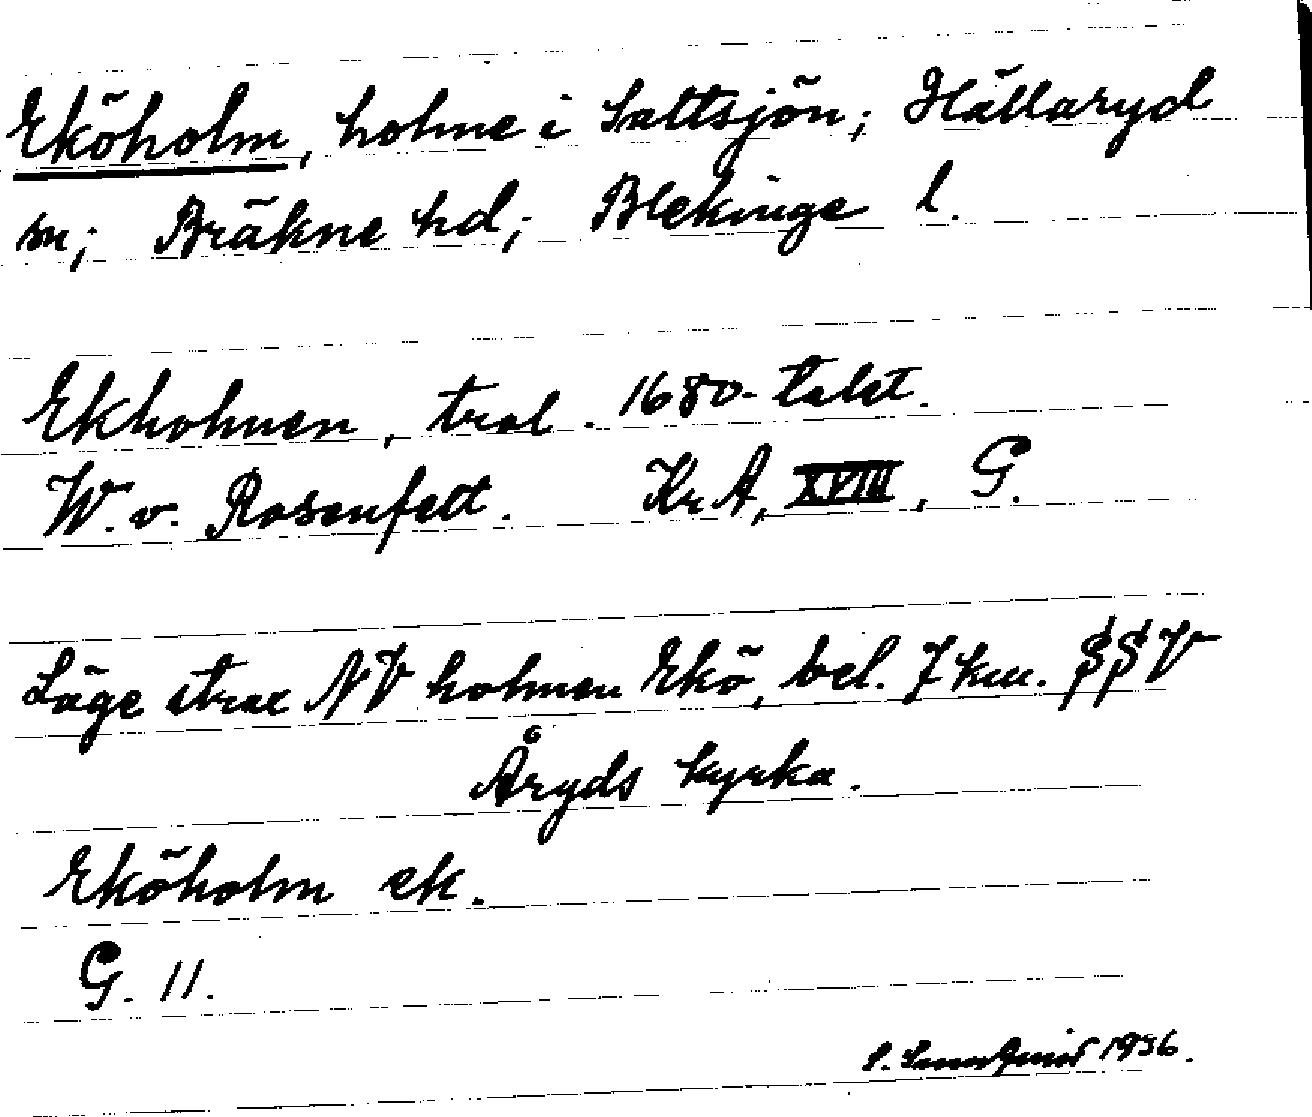 Eköholm, holme i Saltsjön; Hällaryd
sn; Bräkne hd; Blekinge l.
Ekholmen, trol. 1680-talet.
W. v. Rosenfelt. KrA, XVIII, G.
Läge strax NV holmen Ekö, bel. 7 km. SSV
Åryds kyrka.
Eköholm ek.
G. 11.
1936.